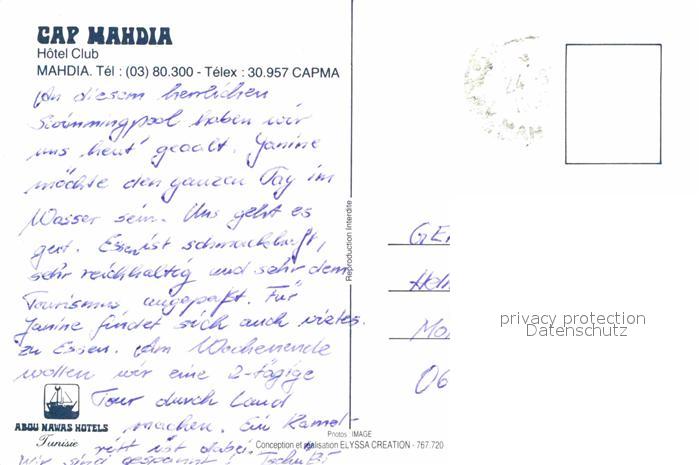 CAP MAHDIA
Hôtel Club
MAHDIA. Tél : (03) 80.300 - Télex : 30.957 CAPMA
An diesem herrlichen
Swimmingpool haben wir
uns heut' geaalt. Janine
möchte den ganzen Tag im
Wasser sein. Uns geht es
gut. Essen ist schmackhaft,
sehr reichhaltig und sehr dem
Tourismus angepaßt. Für
Janine findet sich auch
zu Essen. Am Wochenende
wollen wir eine 2-tägige
Tour durch Land
machen. Ein Kamel-
ritt ist dabei.
Wir sind gespannt!
ABOU NAWAS HOTELS
Tunisie
Reproduction Interdite
Photos IMAGE
Conception et réalisation ELYSSA CREATION - 767.720
24
GE
Mo
06
privacy protection
Datenschutz